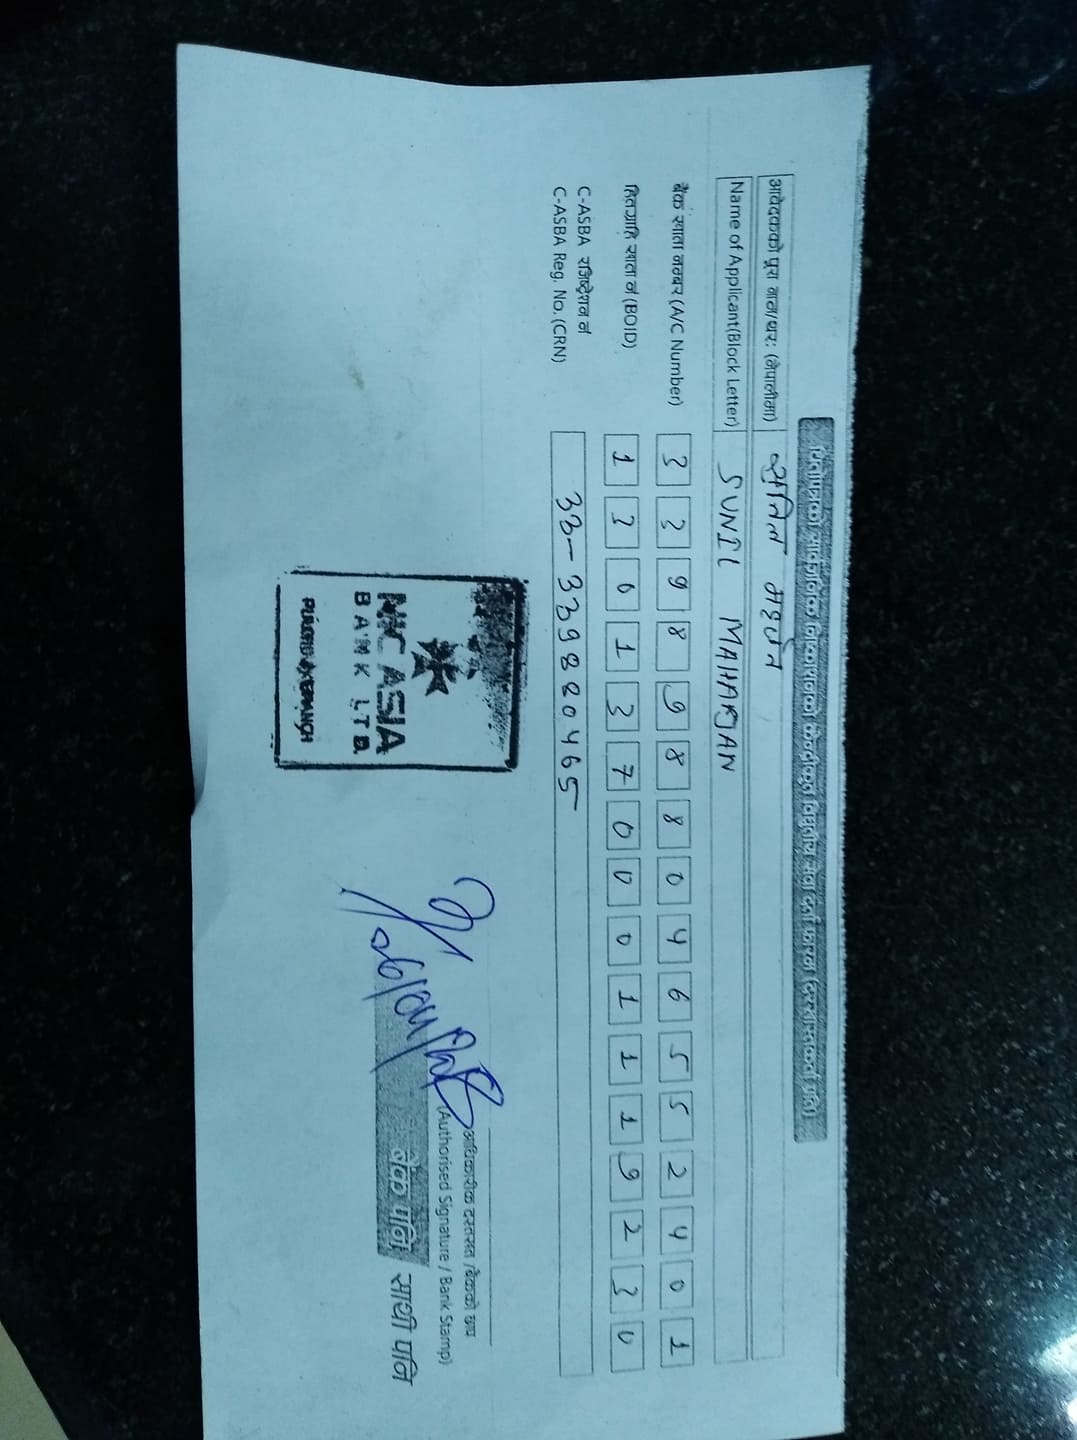 धितोपत्रको सार्वजनिक निष्काशनको केन्द्रीकृत विधुतीय सेवा दर्ता फारम (दरखास्तकर्ता प्रति)
आवेदकको पूरा नाम/थर: (नेपालीमा) सुनिल महर्जन
Name of Applicant(Block Letter) SUNIL MAHARJAN
बैंक खाता नम्बर (A/C Number) 3 3 9 8 9 8 8 0 4 6 5 5 2 4 0 1
हितग्राहि खाता नं (BOID) 1 3 0 1 3 7 0 0 0 1 1 1 9 2 3 0
C-ASBA रजिष्ट्रेशन नं
C-ASBA Reg. No. (CRN) 33-339880465
NIC ASIA
BANK LTD.
BRANCH
आधिकारीक दस्तखत /बैंकको छाप
(Authorised Signature / Bank Stamp)
बैंक पनि, साथी पनि